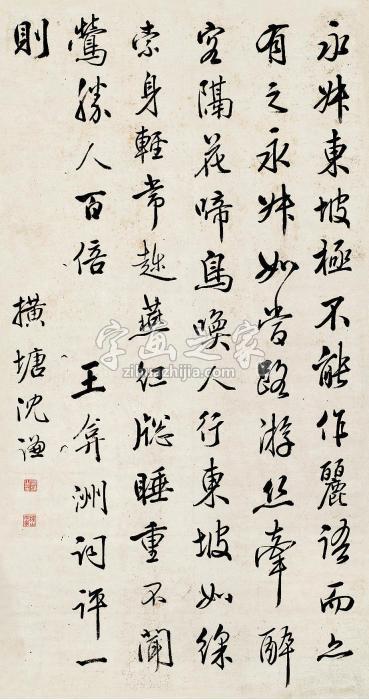 永叔東坡極不能作麗語而亦
有之永叔如當路游絲牽醉
客隔花啼鳥喚人行東坡如綵
索身輕常趁燕紅窗睡重不聞
鶯勝人百倍 王弇洲詞評一
則
橫塘沈謙
字画之家
www.zihuazhijia.com